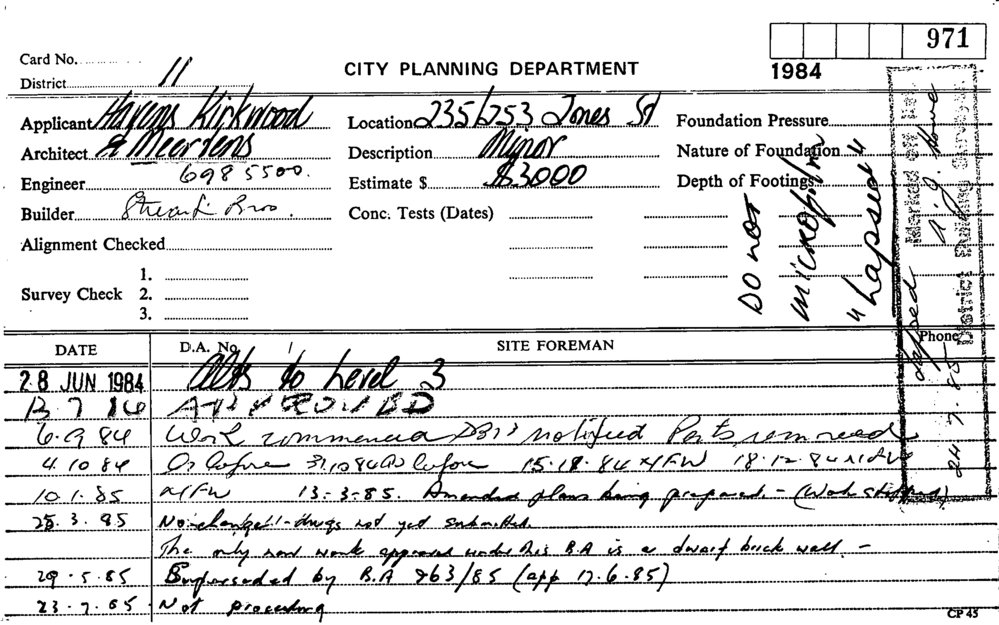 971
1984
Card No.
District 11
CITY PLANNING DEPARTMENT
Applicant Havens Kirkwood
Architect & Meertens
Engineer 6985500.
Builder Stuart Bros.
Alignment Checked
Survey Check
1.
2.
3.
Location 235/253 Jones St
Description Minor
Estimate $ $3000
Conc. Tests (Dates)
Foundation Pressure
Nature of Foundation
Depth of Footings
Do not
microfilm
"Lapsed"
Marked off by
District Building Surveyor
Lapsed
24 7. 85
DATE
D.A. No.
SITE FOREMAN
Phone
28 JUN 1984 Alts to Level 3
13 7 84 APPROVED
6.9 84 Work commenced DBS notified Parts removed
4.10 84 As before 31.10 84 As before 15.1 84 NFW 18.12.84
10.1.85 NFW 13.3.85. Amended plans being prepared. - (Work stopped)
25.3.85 No change - drwgs not yet submitted.
The only new work approved under this B.A is a dwarf brick wall. -
29.5.85 Superseded by B.A 963/85 (app 17.6.85)
23.7.85 Not proceeding
CP 45